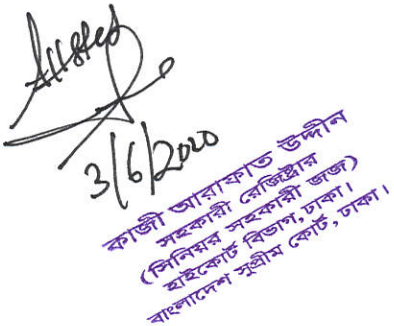 Attested
3/6/2020
কাজী আরাফাত উদ্দীন
সহকারী রেজিস্ট্রার
(সিনিয়র সহকারী জজ)
হাইকোর্ট বিভাগ, ঢাকা।
বাংলাদেশ সুপ্রীম কোর্ট, ঢাকা।